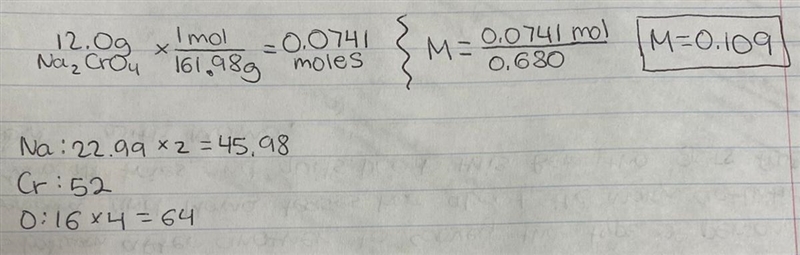 12.0g Na₂CrO₄ × 1mol / 161.98g = 0.0741 moles } M = 0.0741 mol / 0.680 M=0.109
Na: 22.99 × 2 = 45.98
Cr: 52
O: 16 × 4 = 64